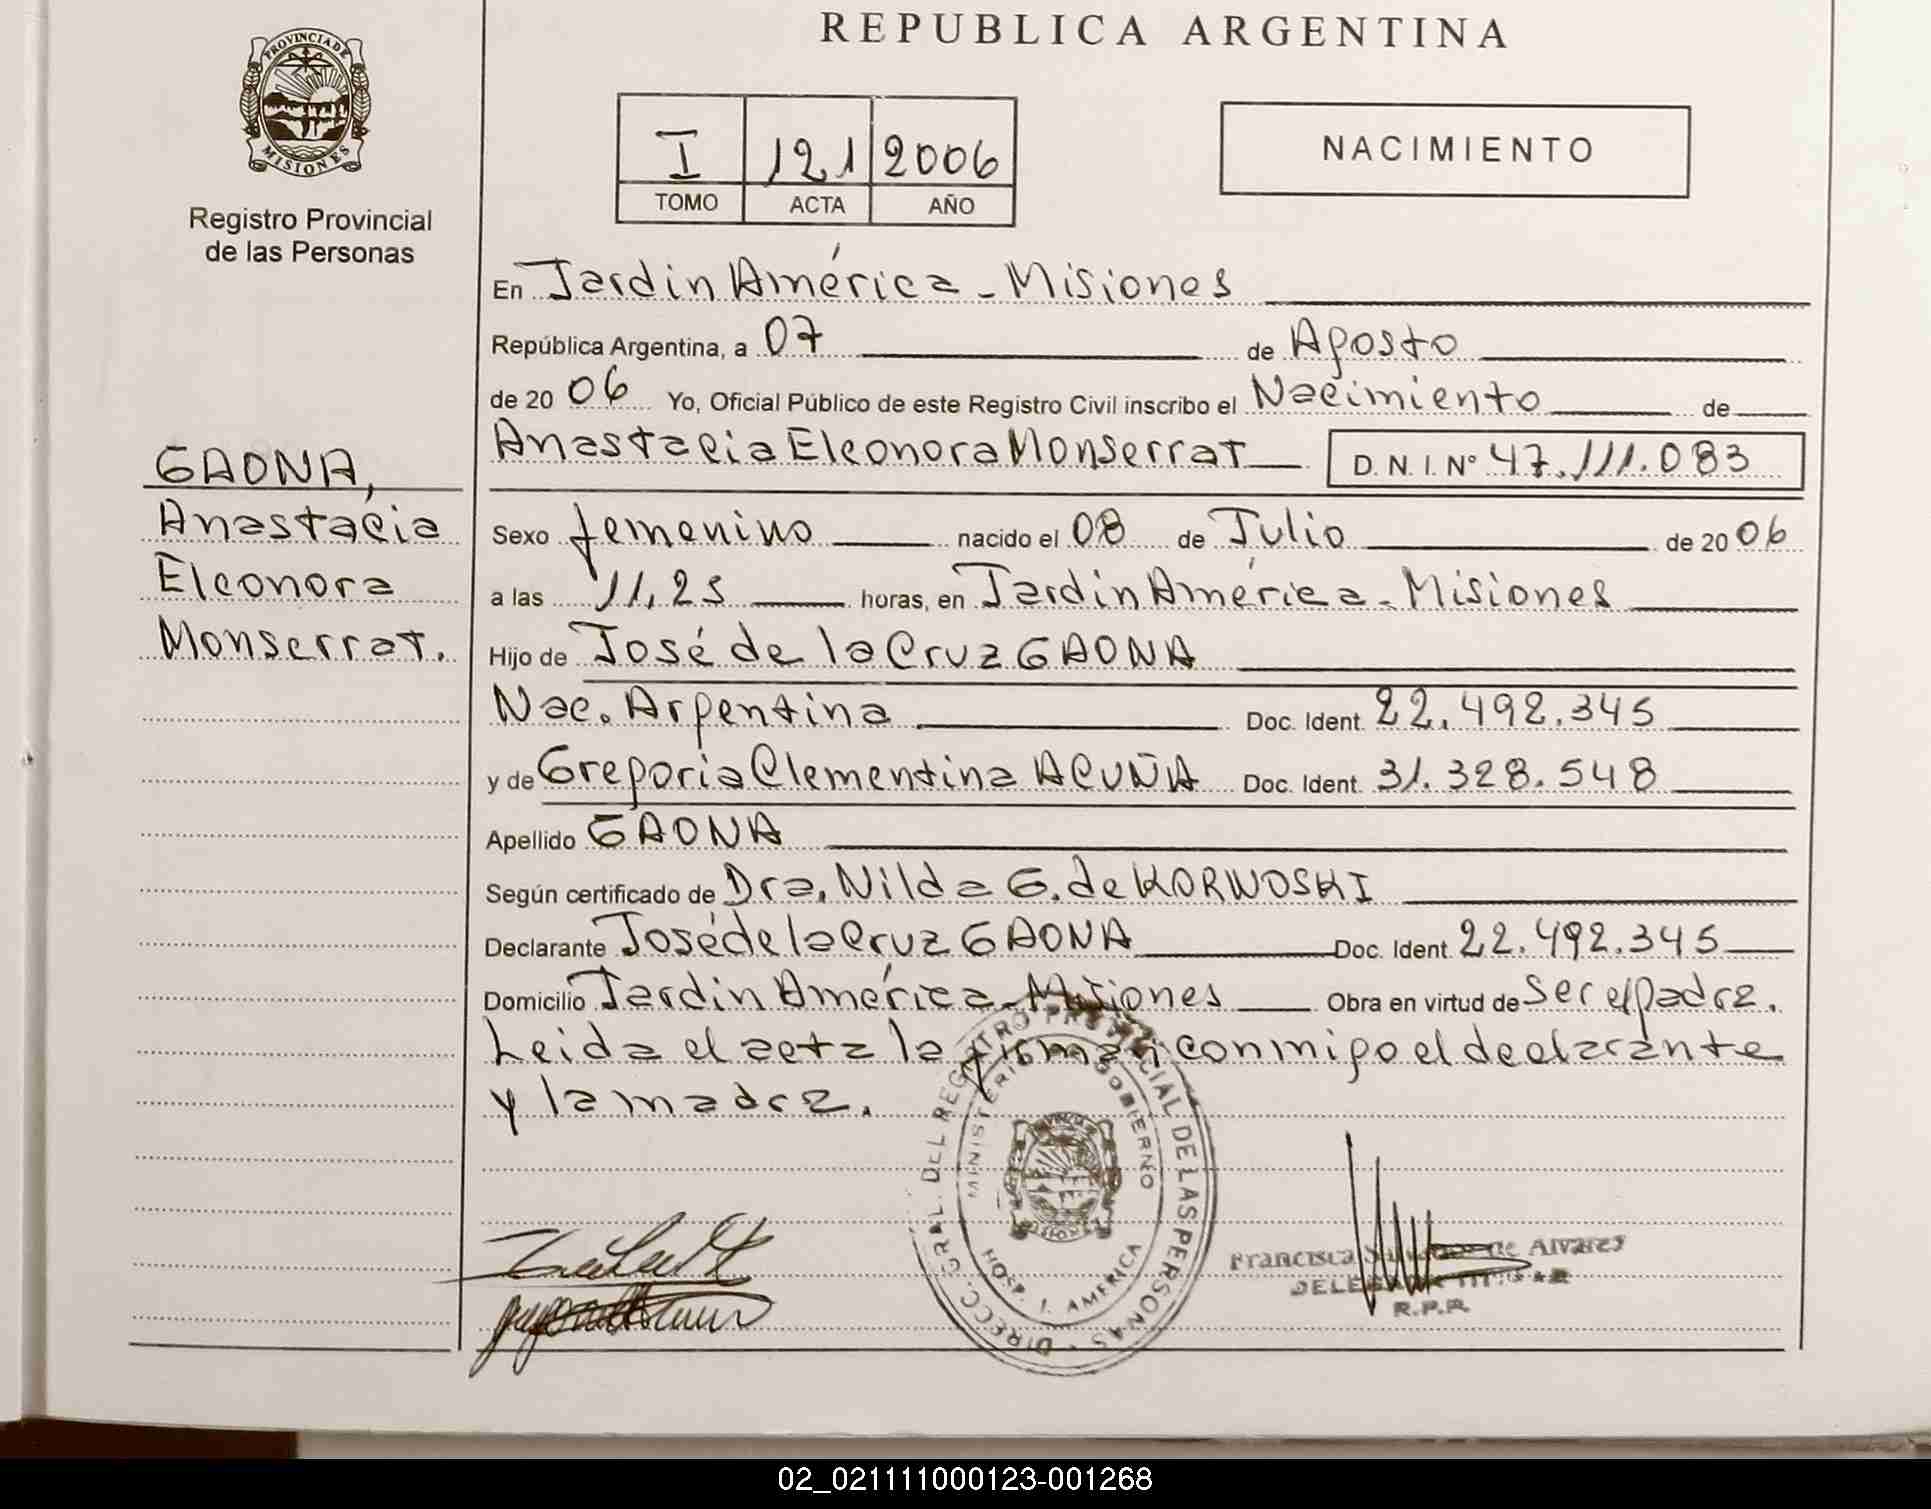 REPUBLICA ARGENTINA
PROVINCIA DE
MISIONES
Registro Provincial
de las Personas
I 121 2006
TOMO ACTA AÑO
NACIMIENTO
En Jardin América - Misiones
República Argentina, a 07 de Agosto
de 20 06 Yo, Oficial Público de este Registro Civil inscribo el Nacimiento de
Anastacia Eleonora Monserrat D. N. I. Nº 47.111.083
GAONA,
Anastacia
Eleonora
Monserrat.
Sexo femenino nacido el 08 de Julio de 20 06
a las 11,25 horas, en Jardin América - Misiones
Hijo de José de la Cruz GAONA
Nac. Argentina Doc. Ident. 22.492.345
y de Gregoria Clementina ACUÑA Doc. Ident. 31.328.548
Apellido GAONA
Según certificado de Dra. Nilda G. de KORNOSKI
Declarante José de la Cruz GAONA Doc. Ident. 22.492.345
Domicilio Jardin América - Misiones Obra en virtud de ser el padre.
Leida el acta la firman conmigo el declarante
y la madre.
DIRECC. GRAL. DEL REGISTRO PROVINCIAL DE LAS PERSONAS
MINISTERIO GOBIERNO
HOSP. J. AMERICA
Francisca de Alvarez
DELEGADA TITULAR
R.P.P.
02_021111000123-001268